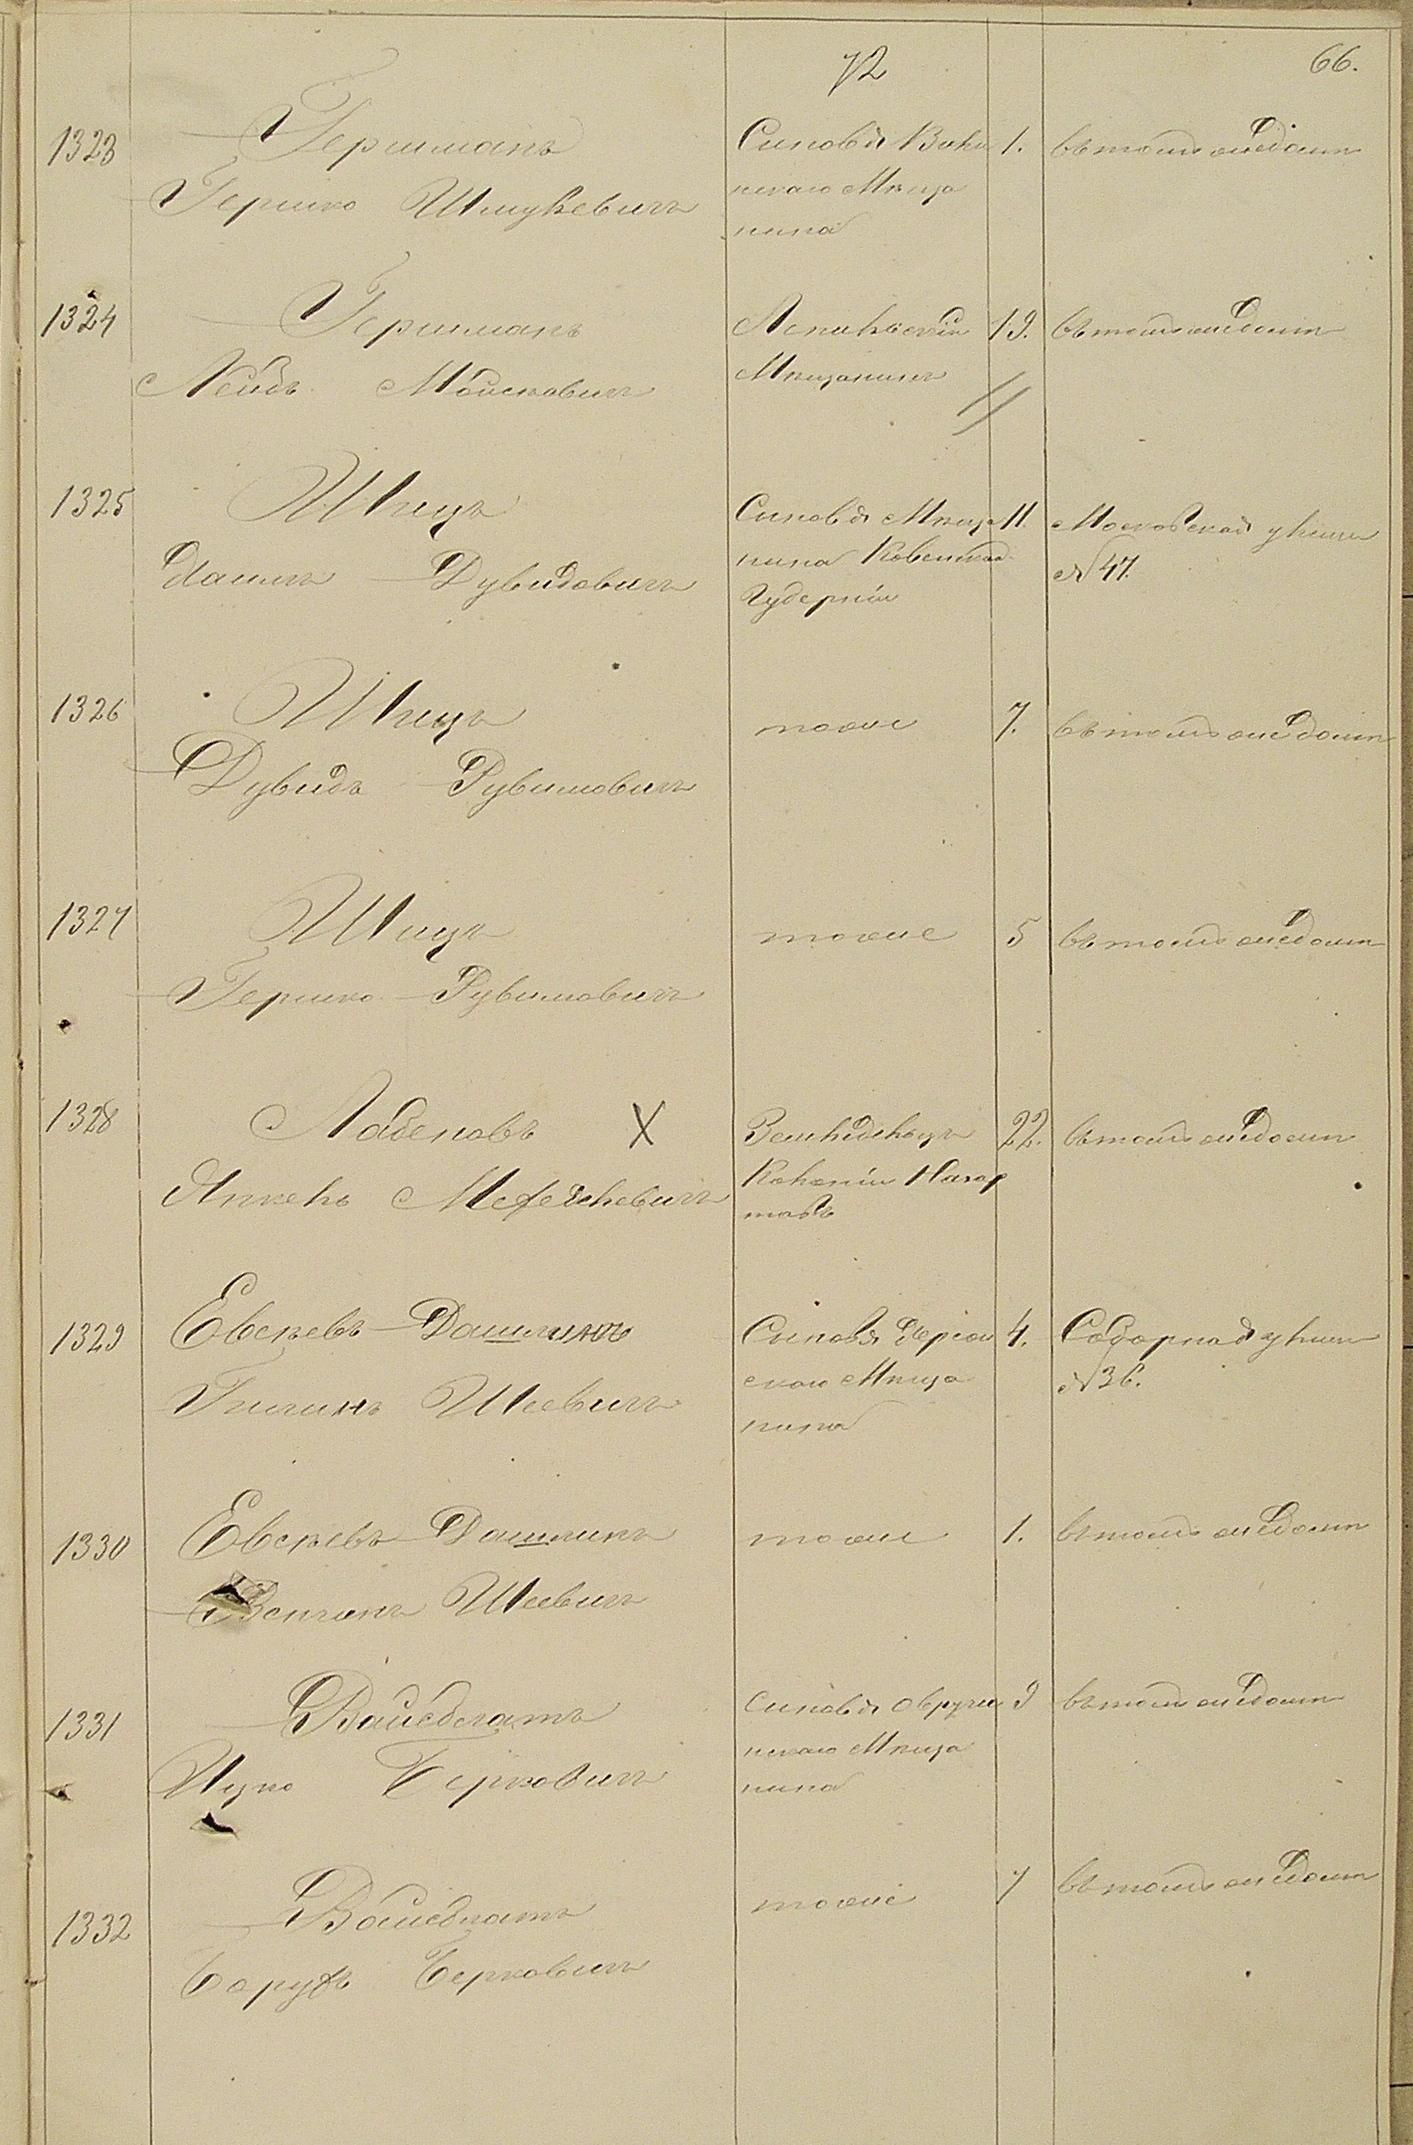 72
66.
1323
Гершманъ
Гершко Шмулевичъ
Сыновья Вилен
искаго Мѣща
нина
1.
въ томъ же домѣ
1324
Гершманъ
Лейбъ Мойсковичъ
Мѣщанинъ
19.
въ томъ же домѣ
1325
Шпицъ
Дувидовичъ
Сыновья Мѣща
нина Ковенской
Губерніи
11.
Московская улица
№ 47.
1326
Шпицъ
Дувидъ Рувимовичъ
тоже
7.
въ томъ же домѣ
1327
Шпицъ
Гершко Рувимовичъ
тоже
5
въ томъ же домѣ
1328
Лабеновъ X
Янкель
Земледѣлецъ
Колоніи Нагар
тавъ
22.
въ томъ же домѣ
1329
Евсѣевъ Дашминъ
Шеевичъ
Сыновья
скаго Мѣща
нина
4.
Соборная улица
№ 36.
1330
Евсѣевъ Дашминъ
Шеевичъ
тоже
1.
въ томъ же домѣ
1331
Вайсблатъ
Ицко Берковичъ
Сыновья Овруч
искаго Мѣща
нина
9
въ томъ же домѣ
1332
Вайсблатъ
Борухъ Берковичъ
тоже
7
въ томъ же домѣ